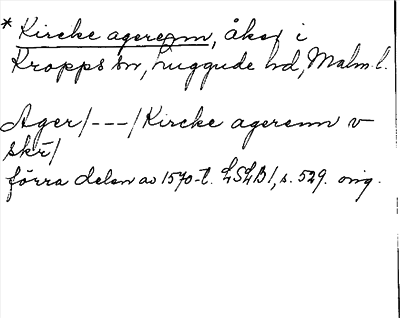 * Kircke agerenn, åker i
Kropps sn, Luggude hd, Malm. l.
Ager/---/Kircke agerenn v
skr/
förra delen av 1570-t. LSLB1, s. 529. orig.